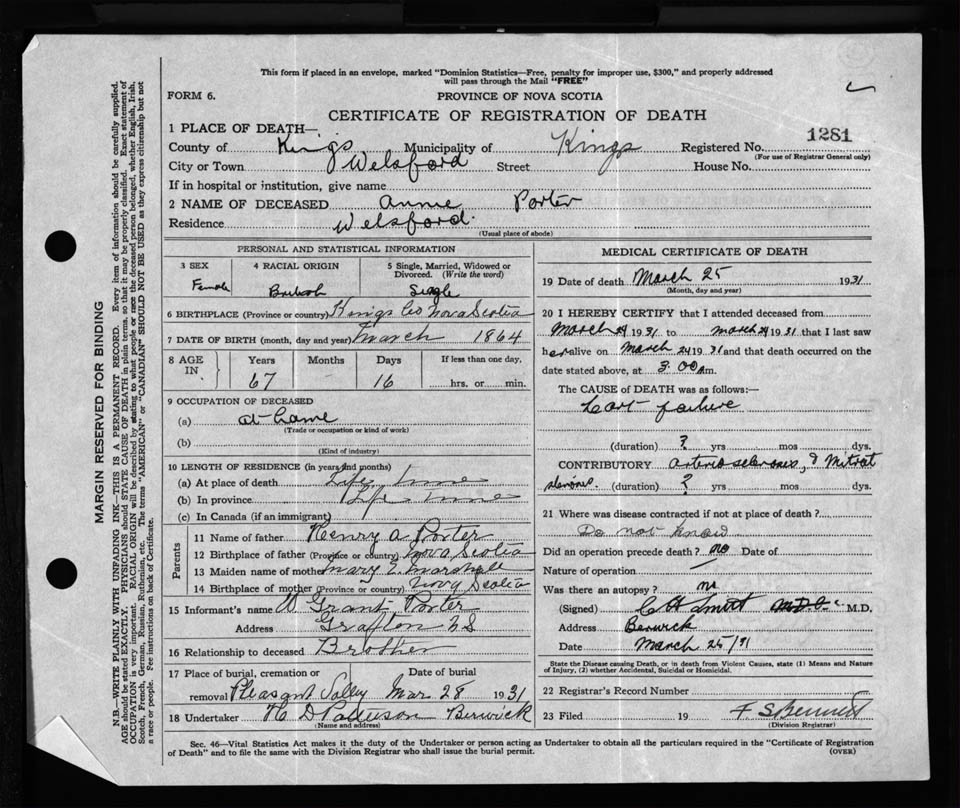 This form if placed in an envelope, marked "Dominion Statistics—Free, penalty for improper use, $300," and properly addressed
will pass through the Mail "FREE"
FORM 6.
PROVINCE OF NOVA SCOTIA
CERTIFICATE OF REGISTRATION OF DEATH
1281
1 PLACE OF DEATH—
County of Kings Municipality of Kings Registered No.
(For use of Registrar General only)
City or Town Welsford Street House No.
If in hospital or institution, give name
2 NAME OF DECEASED Annie Porter
Residence Welsford.
(Usual place of abode)
PERSONAL AND STATISTICAL INFORMATION
3 SEX
Female
4 RACIAL ORIGIN
5 Single, Married, Widowed or
Divorced. (Write the word)
Single
6 BIRTHPLACE (Province or country) Kings Co Nova Scotia
7 DATE OF BIRTH (month, day and year) March 1864
8 AGE IN
Years Months Days If less than one day,
67 16 hrs. or min.
9 OCCUPATION OF DECEASED
(a) at home
(Trade or occupation or kind of work)
(b)
(Kind of industry)
10 LENGTH OF RESIDENCE (in years and months)
(a) At place of death Life time
(b) In province Life time
(c) In Canada (if an immigrant)
Parents
11 Name of father Henry A. Porter
12 Birthplace of father (Province or country) Nova Scotia
13 Maiden name of mother Mary E. Marshall
14 Birthplace of mother (Province or country) Nova Scotia
15 Informant's name Grant Porter
Address Grafton NS
16 Relationship to deceased Brother
17 Place of burial, cremation or Date of burial
removal Pleasant Valley Mar. 28 1931
18 Undertaker H D Patterson Berwick
(Name and address)
MEDICAL CERTIFICATE OF DEATH
19 Date of death March 25 1931
(Month, day and year)
20 I HEREBY CERTIFY that I attended deceased from
March 24 1931 to March 24 1931 that I last saw
her alive on March 24 1931 and that death occurred on the
date stated above, at 3.00 a.m.
The CAUSE OF DEATH was as follows:—
Heart failure
(duration) ? yrs mos dys.
CONTRIBUTORY arteriosclerosis, & Mitral
stenosis. (duration) ? yrs mos dys.
21 Where was disease contracted if not at place of death?
Do not know
Did an operation precede death? no Date of
Nature of operation
Was there an autopsy? no
(Signed) M.D.
Address Berwick
Date March 25/31
State the Disease causing Death, or in death from Violent Causes, state (1) Means and Nature
of Injury, (2) whether Accidental, Suicidal or Homicidal.
22 Registrar's Record Number
23 Filed 19 F. S Bennett
(Division Registrar)
Sec. 46—Vital Statistics Act makes it the duty of the Undertaker or person acting as Undertaker to obtain all the particulars required in the "Certificate of Registration
of Death" and to file the same with the Division Registrar who shall issue the burial permit.
(OVER)
MARGIN RESERVED FOR BINDING
N.B.—WRITE PLAINLY WITH UNFADING INK—THIS IS A PERMANENT RECORD. Every item of information should be carefully supplied.
AGE should be stated EXACTLY. PHYSICIANS should STATE CAUSE OF DEATH in plain terms, so that it may be properly classified. Exact statement of
OCCUPATION is very important. RACIAL ORIGIN will be described by stating to what people or race the deceased person belonged, whether English, Irish,
Scotch, French, German, Russian, Ruthenian, etc. The terms "AMERICAN" or "CANADIAN" SHOULD NOT BE USED as they express citizenship but not
a race or people. See instructions on back of Certificate.